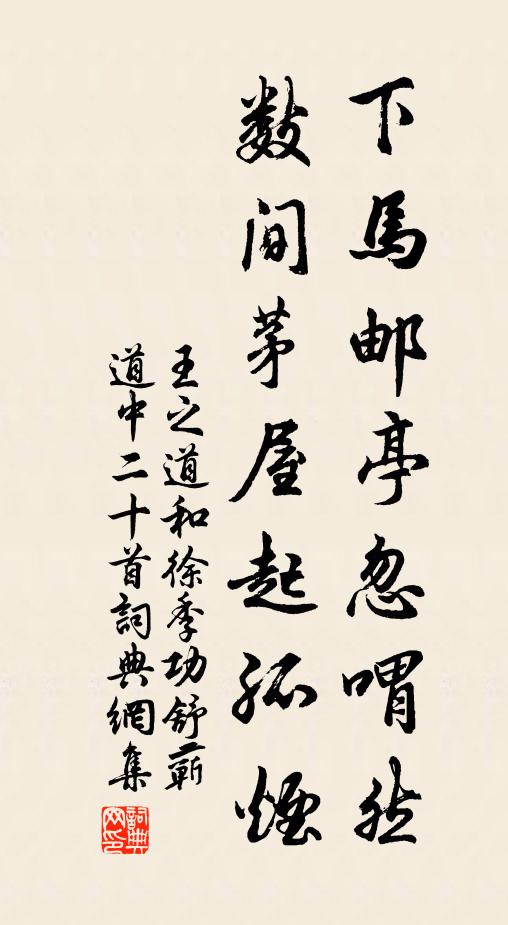 下馬邮亭忽喟然
数间茅屋起孤煙
王之道和徐季功舒蕲
道中二十首詞典網集
詞典网印